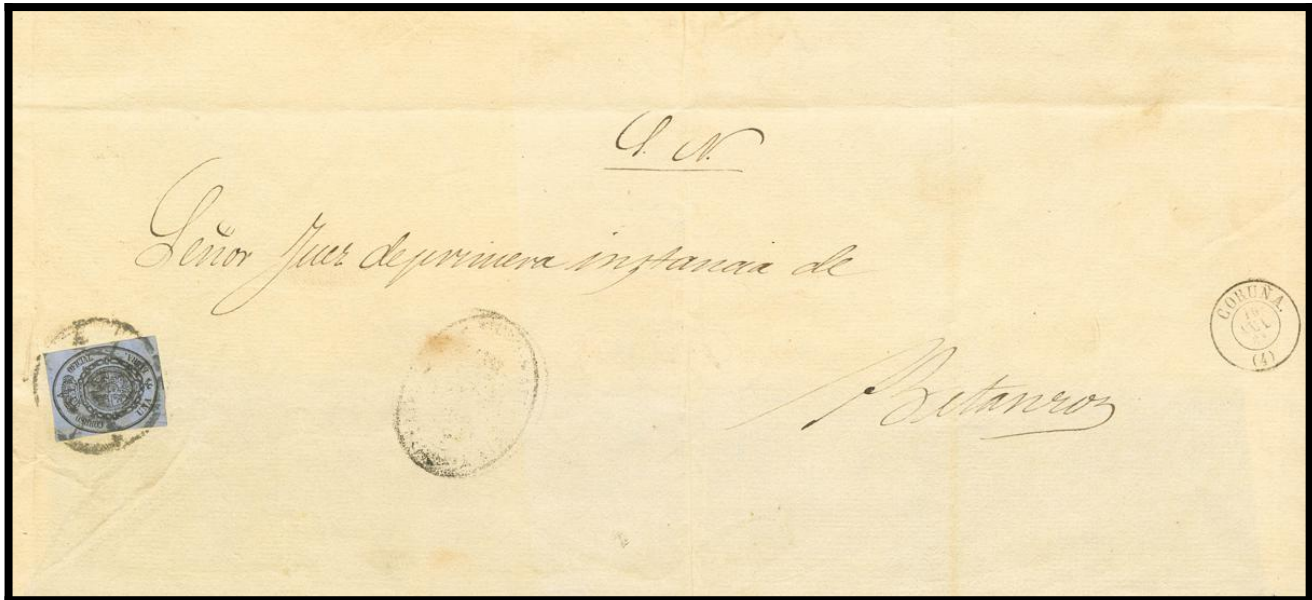 S. N.
Señor Juez de primera instancia de
Betanzos
CORUÑA.
(4)
CORREO OFICIAL
UNA LIBRA